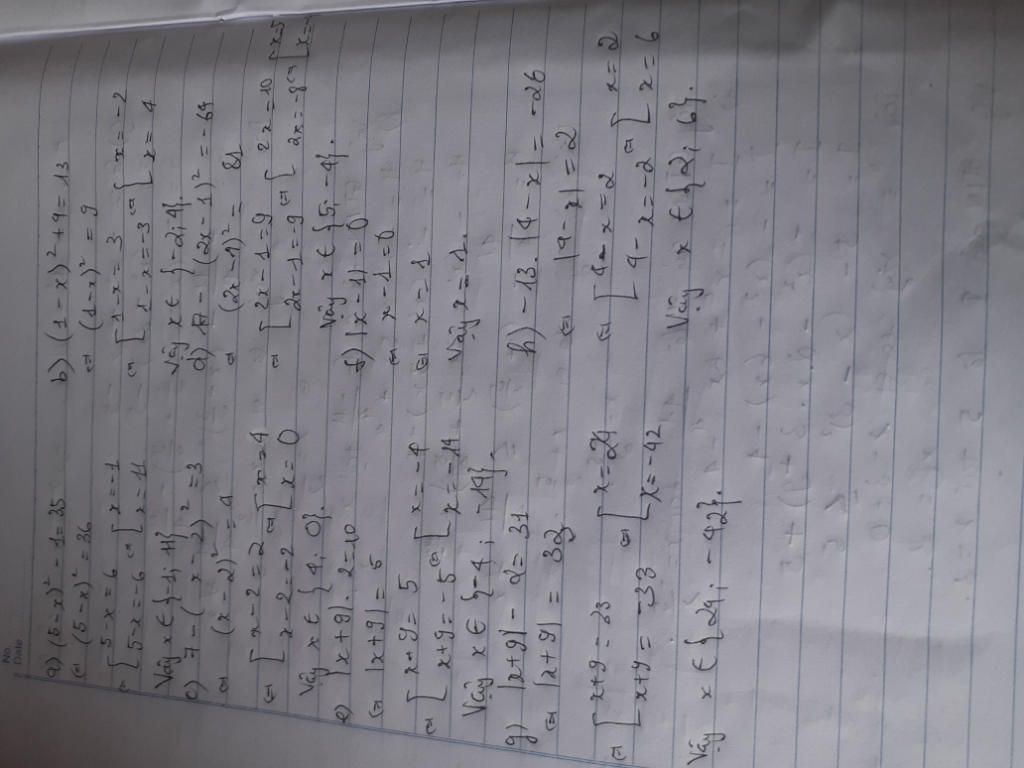 No.
Date
a) (5-x)² - 1 = 35
⇔ (5-x)² = 36
⇔ [ 5-x = 6 ⇔ [ x = -1
[ 5-x = -6 [ x = 11
Vậy x ∈ {-1; 11}
c) 7 - (x-2)² = 3
⇔ (x-2)² = 4
⇔ [ x-2 = 2 ⇔ [ x = 4
[ x-2 = -2 [ x = 0
Vậy x ∈ {4; 0}.
e) |x+9| . 2 = 10
⇔ |x+9| = 5
⇔ [ x+9 = 5 ⇔ [ x = -4
[ x+9 = -5 [ x = -14
Vậy x ∈ {-4; -14}.
g) |x+9| - 2 = 31
⇔ |x+9| = 33
⇔ [ x+9 = 33 ⇔ [ x = 24
[ x+9 = -33 [ x = -42
Vậy x ∈ {24; -42}.
b) (1-x)² + 4 = 13
⇔ (1-x)² = 9
⇔ [ 1-x = 3 ⇔ [ x = -2
[ 1-x = -3 [ x = 4
Vậy x ∈ {-2; 4}.
d) 17 - (2x-1)² = -64
⇔ (2x-1)² = 81
⇔ [ 2x-1 = 9 ⇔ [ 2x = 10 ⇔ [ x = 5
[ 2x-1 = -9 [ 2x = -8 [ x =
Vậy x ∈ {5; -4}.
f) |x-1| = 0
⇔ x-1 = 0
⇔ x = 1
Vậy x = 1.
h) -13 . |4-x| = -26
⇔ |4-x| = 2
⇔ [ 4-x = 2 ⇔ [ x = 2
[ 4-x = -2 [ x = 6
Vậy x ∈ {2; 6}.